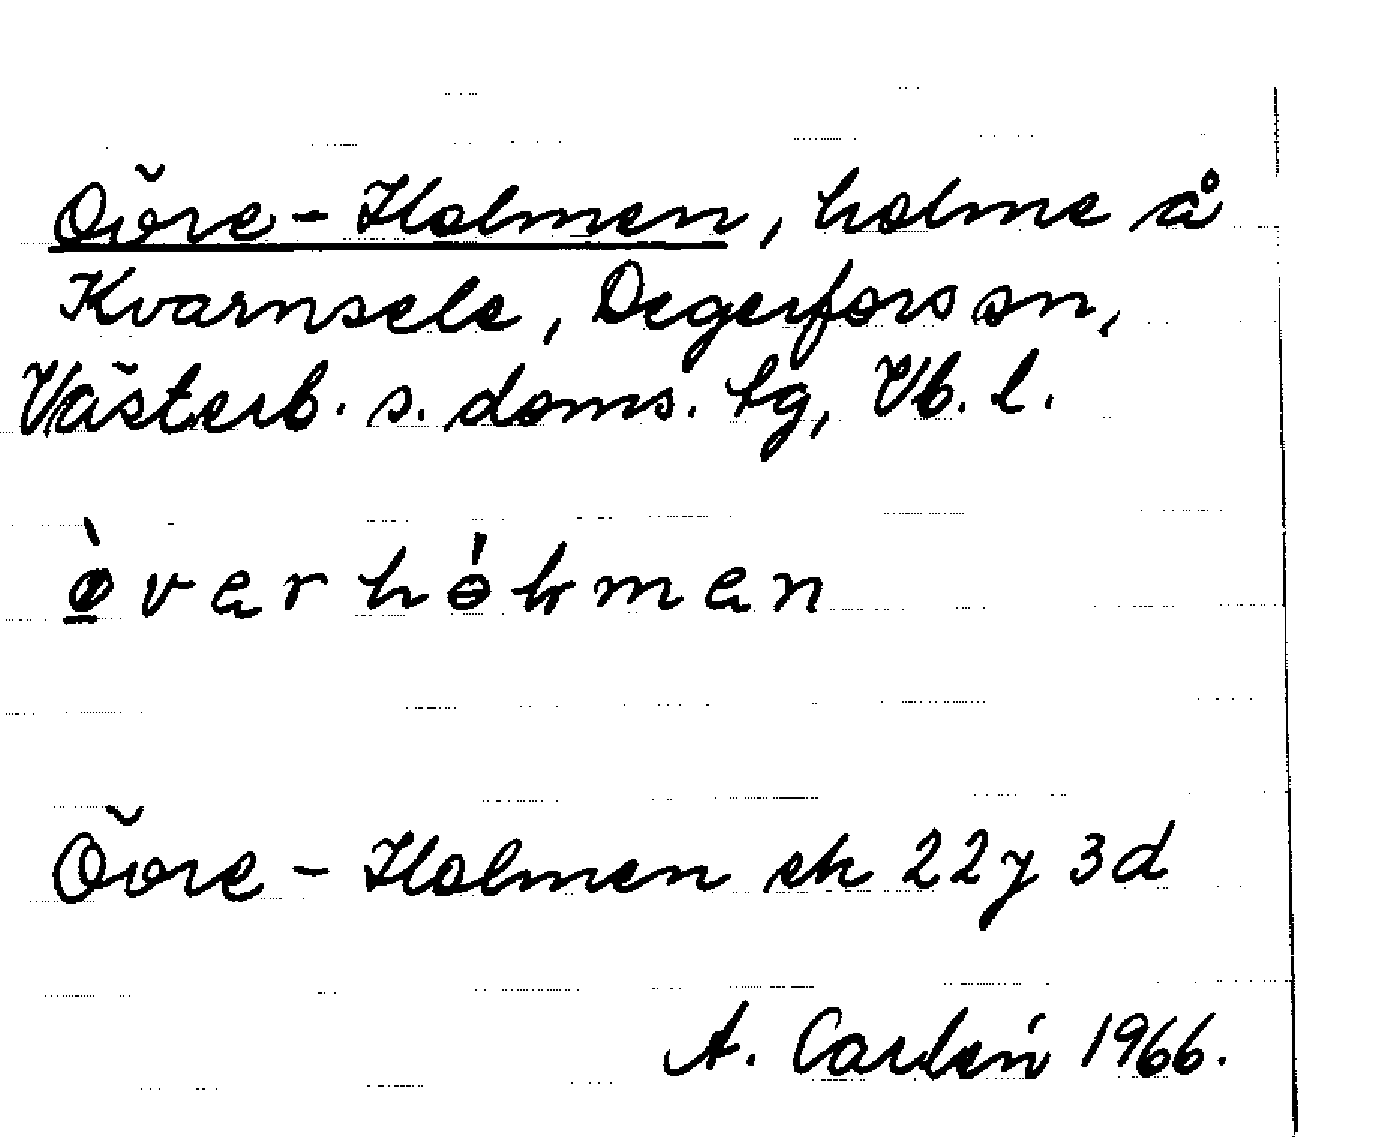 Övre-Holmen, holme å
Kvarnsele, Degerfors sn,
Västerb. s. doms. tg, Vb. l.
Övre-Holmen ek 22y 3d
A. Carlén 1966.